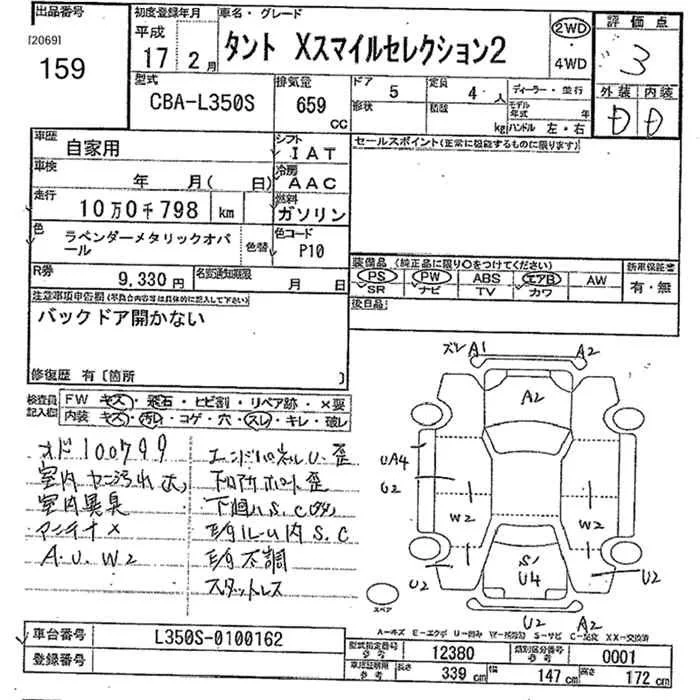 出品番号
[2069]
159
初度登録年月
平成
17 2月
車名・グレード
タント Xスマイルセレクション2
2WD
4WD
評価点
3
外装 内装
D D
型式
CBA-L350S
排気量
659
CC
ドア
5
定員
4 人
形状
積載
kg
ディーラー・並行
モデル年式 年
ハンドル 左・右
車歴
自家用
シフト
IAT
車検
年 月( 日)
冷房
AAC
走行
10万0千798 km
燃料
ガソリン
色
ラベンダーメタリックオパール
色替
色コード
P10
R券
9,330円
名変通知期限
月 日
セールスポイント(正常に機能するものに限ります)
装備品(純正品に限り○をつけてください)
PS PW ABS エアB AW
SR ナビ TV カワ
新車保証書
有・無
後日品
注意事項申告欄(不具合内容等は具体的に記入して下さい)
バックドア開かない
修復歴 有〔箇所 〕
検査員記入欄
FW キズ・飛石・ヒビ割・リペア跡・×要
内装 キズ・汚れ・コゲ・穴・スレ・キレ・破レ
オド100799
室内ヤニ汚れ大
室内異臭
アンテナ×
A.U.W2
エンドパネルU・歪
下廻りS.C
E/gルーム内S.C
E/g不調
スタットレス
ズレ A1 A2
A2
UA4
U2
W2 W2
S1
U4
U2 U2
U2 A2
スペア
A-キズ E-エクボ U-凹み W-補修跡 S-サビ C-腐食 XX-交換済
車台番号
L350S-0100162
登録番号
型式指定番号 参考
12380
類別区分番号 参考
0001
車検証明用 参考
長さ 339 cm 幅 147 cm 高さ 172 cm